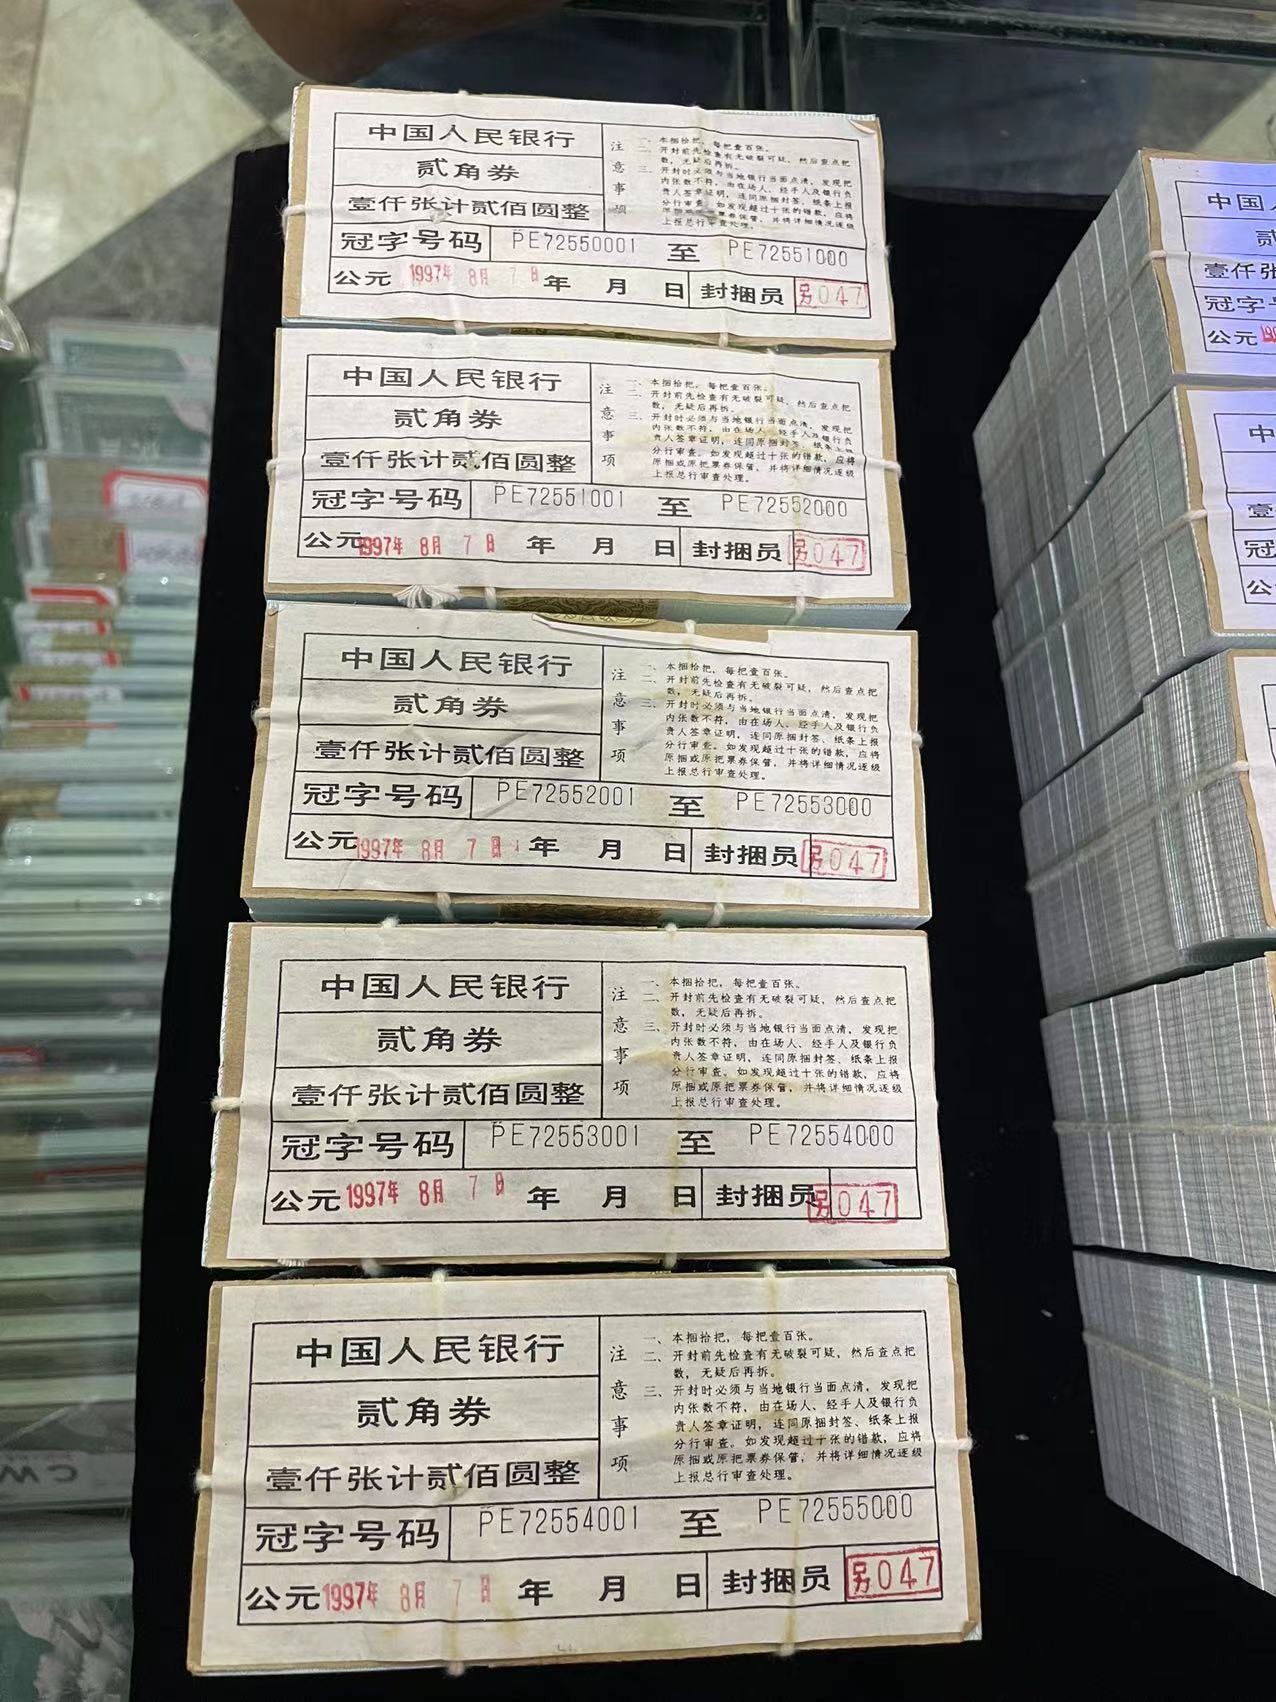 中国人民银行
贰角券
壹仟张计贰佰圆整
注意事项
一、本捆拾把，每把壹百张。
二、开封前先检查有无破裂可疑，然后查点把
数，无疑后再拆。
三、开封时必须与当地银行当面点清，发现把
内张数不符，由在场人、经手人及银行负
责人签章证明，连同原捆封签、纸条上报
分行审查。如发现超过十张的错款，应将
原捆或原把票券保管，并将详细情况逐级
上报总行审查处理。
冠字号码 PE72550001 至 PE72551000
公元 1997年 8月 7日 年 月 日 封捆员 另047
中国人民银行
贰角券
壹仟张计贰佰圆整
注意事项
一、本捆拾把，每把壹百张。
二、开封前先检查有无破裂可疑，然后查点把
数，无疑后再拆。
三、开封时必须与当地银行当面点清，发现把
内张数不符，由在场人、经手人及银行负
责人签章证明，连同原捆封签、纸条上报
分行审查。如发现超过十张的错款，应将
原捆或原把票券保管，并将详细情况逐级
上报总行审查处理。
冠字号码 PE72551001 至 PE72552000
公元 1997年 8月 7日 年 月 日 封捆员 另047
中国人民银行
贰角券
壹仟张计贰佰圆整
注意事项
一、本捆拾把，每把壹百张。
二、开封前先检查有无破裂可疑，然后查点把
数，无疑后再拆。
三、开封时必须与当地银行当面点清，发现把
内张数不符，由在场人、经手人及银行负
责人签章证明，连同原捆封签、纸条上报
分行审查。如发现超过十张的错款，应将
原捆或原把票券保管，并将详细情况逐级
上报总行审查处理。
冠字号码 PE72552001 至 PE72553000
公元 1997年 8月 7日 年 月 日 封捆员 另047
中国人民银行
贰角券
壹仟张计贰佰圆整
注意事项
一、本捆拾把，每把壹百张。
二、开封前先检查有无破裂可疑，然后查点把
数，无疑后再拆。
三、开封时必须与当地银行当面点清，发现把
内张数不符，由在场人、经手人及银行负
责人签章证明，连同原捆封签、纸条上报
分行审查。如发现超过十张的错款，应将
原捆或原把票券保管，并将详细情况逐级
上报总行审查处理。
冠字号码 PE72553001 至 PE72554000
公元 1997年 8月 7日 年 月 日 封捆员 另047
中国人民银行
贰角券
壹仟张计贰佰圆整
注意事项
一、本捆拾把，每把壹百张。
二、开封前先检查有无破裂可疑，然后查点把
数，无疑后再拆。
三、开封时必须与当地银行当面点清，发现把
内张数不符，由在场人、经手人及银行负
责人签章证明，连同原捆封签、纸条上报
分行审查。如发现超过十张的错款，应将
原捆或原把票券保管，并将详细情况逐级
上报总行审查处理。
冠字号码 PE72554001 至 PE72555000
公元 1997年 8月 7日 年 月 日 封捆员 另047
中国
贰
壹仟张
冠字号
公元
中
壹
冠
公